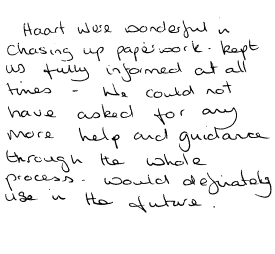 Haart were wonderful in
chasing up paperwork. kept
us fully informed at all
times - We could not
have asked for any
more help and guidance
through the whole
process. would definately
use in the future.